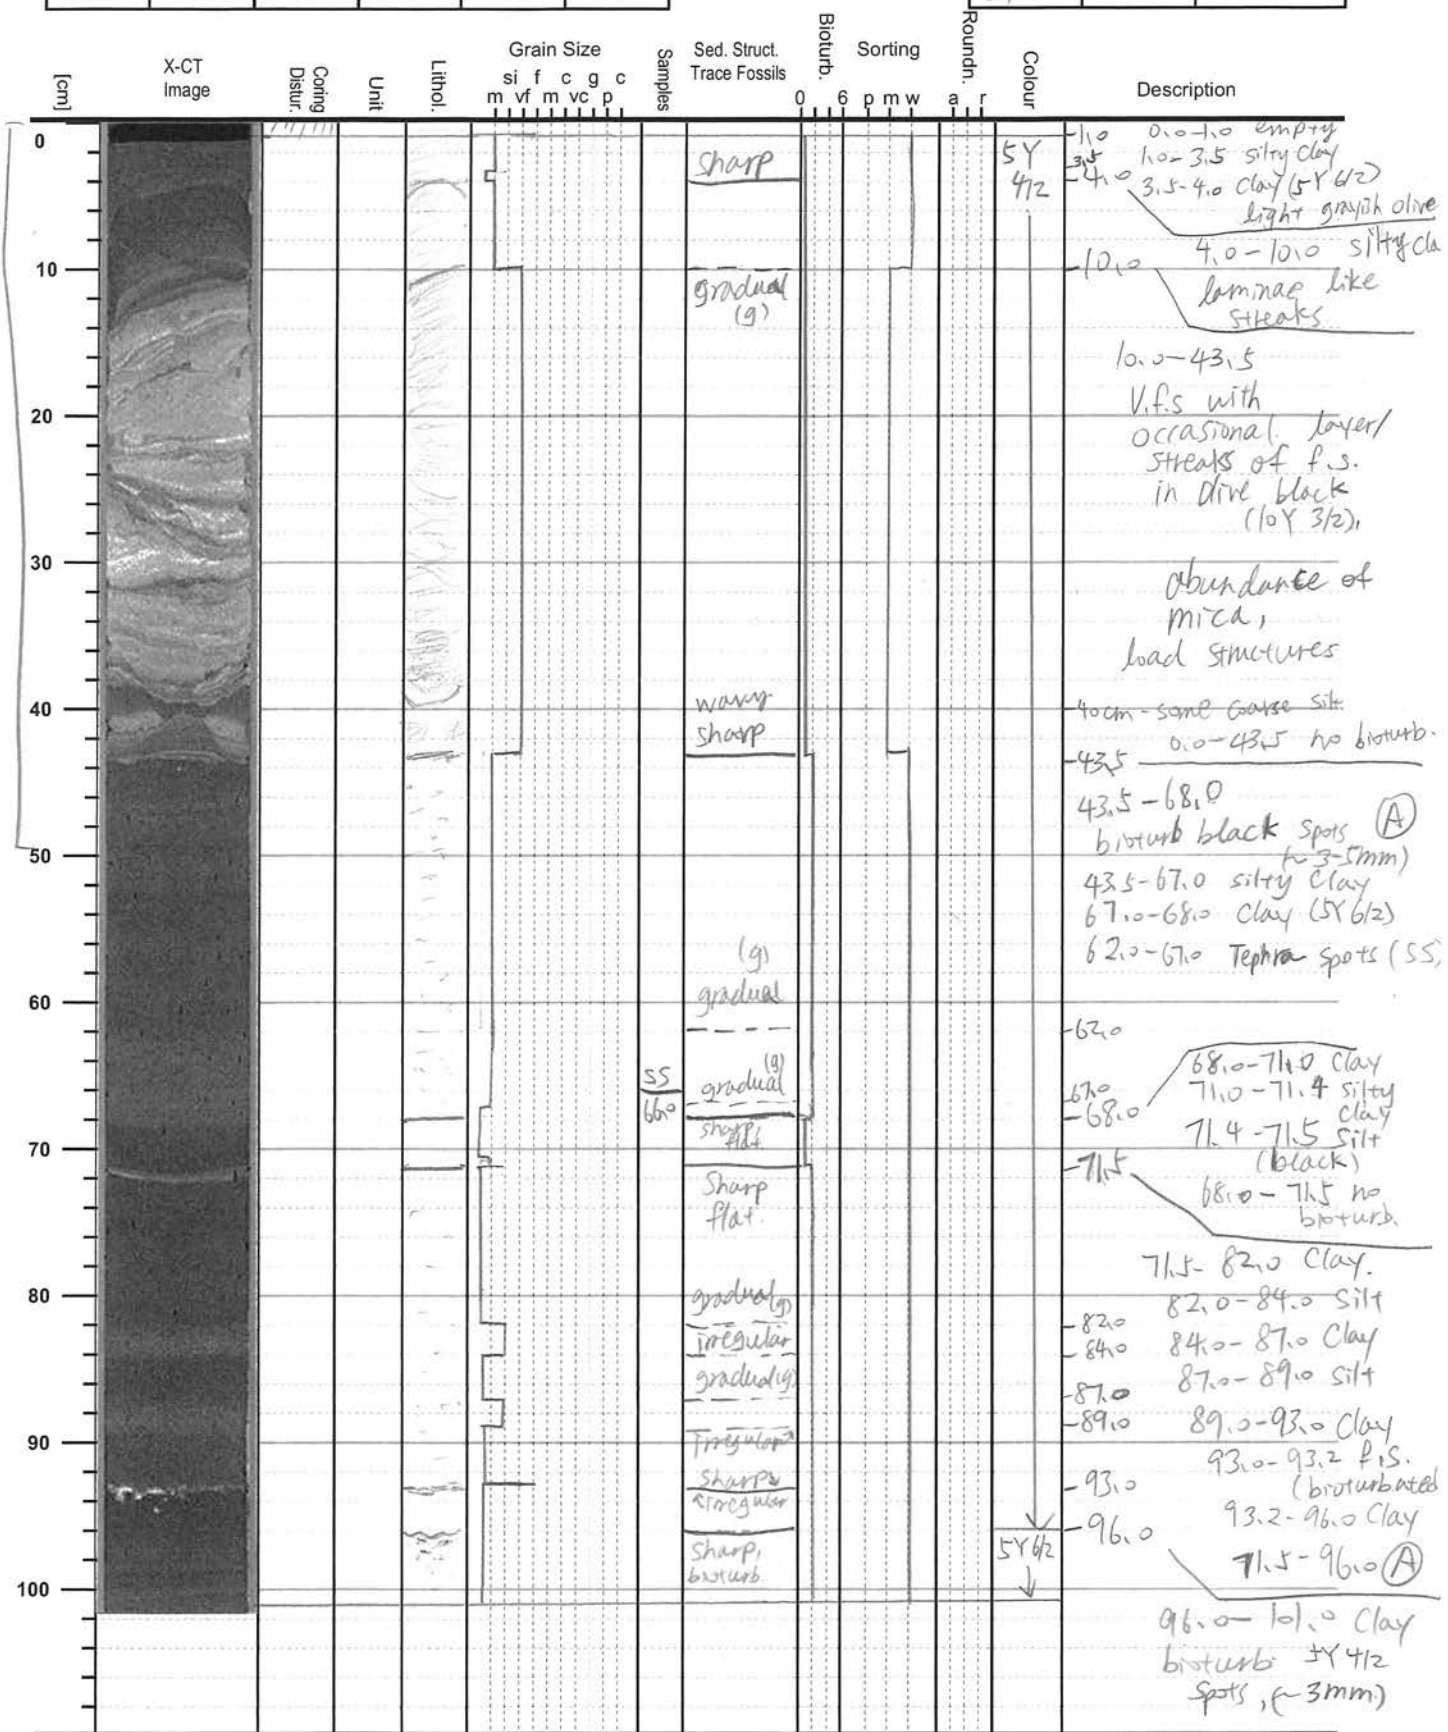 [cm]
X-CT
Image
Coring
Distur.
Unit
Lithol.
Grain Size
si f c g c
m vf m vc p
Samples
Sed. Struct.
Trace Fossils
Bioturb.
0 6
Sorting
p m w
Roundn.
a r
Colour
Description
0
10
20
30
40
50
60
70
80
90
100
SS
66.0
sharp
gradual
(g)
wavy
sharp
(g)
gradual
(g)
gradual
sharp,
flat
Sharp
flat.
gradual(g)
irregular
gradual(g)
irregular
sharp
irregular
sharp,
bioturb.
5Y
4/2
5Y 6/2
1.0
3.5
4.0
10.0
43.5
62.0
67.0
68.0
71.5
82.0
84.0
87.0
89.0
93.0
96.0
0.0-1.0 empty
1.0-3.5 silty clay
3.5-4.0 clay (5Y 6/2)
light grayish olive
4.0-10.0 silty cla
laminae like
streaks
10.0-43.5
V.f.s with
occasional layer/
streaks of f.s.
in olive black
(10Y 3/2),
abundance of
mica,
load structures
40cm-some coarse silt
0.0-43.5 no bioturb.
43.5-68.0
bioturb black spots Ⓐ
(~3-5mm)
43.5-67.0 silty clay
67.0-68.0 Clay (5Y 6/2)
62.0-67.0 Tephra spots (SS,
68.0-71.0 Clay
71.0-71.4 silty
clay
71.4-71.5 silt
(black)
68.0-71.5 no
bioturb.
71.5-82.0 Clay.
82.0-84.0 Silt
84.0-87.0 Clay
87.0-89.0 silt
89.0-93.0 Clay
93.0-93.2 f.s.
(bioturbated
93.2-96.0 Clay
71.5-96.0 Ⓐ
96.0-101.0 Clay
bioturb. 5Y 4/2
spots, (~3mm)